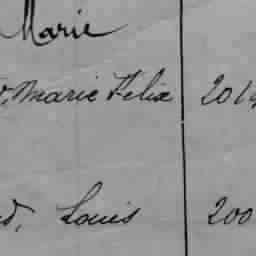 Marie
, Marie Felix 2019
d, Louis 200